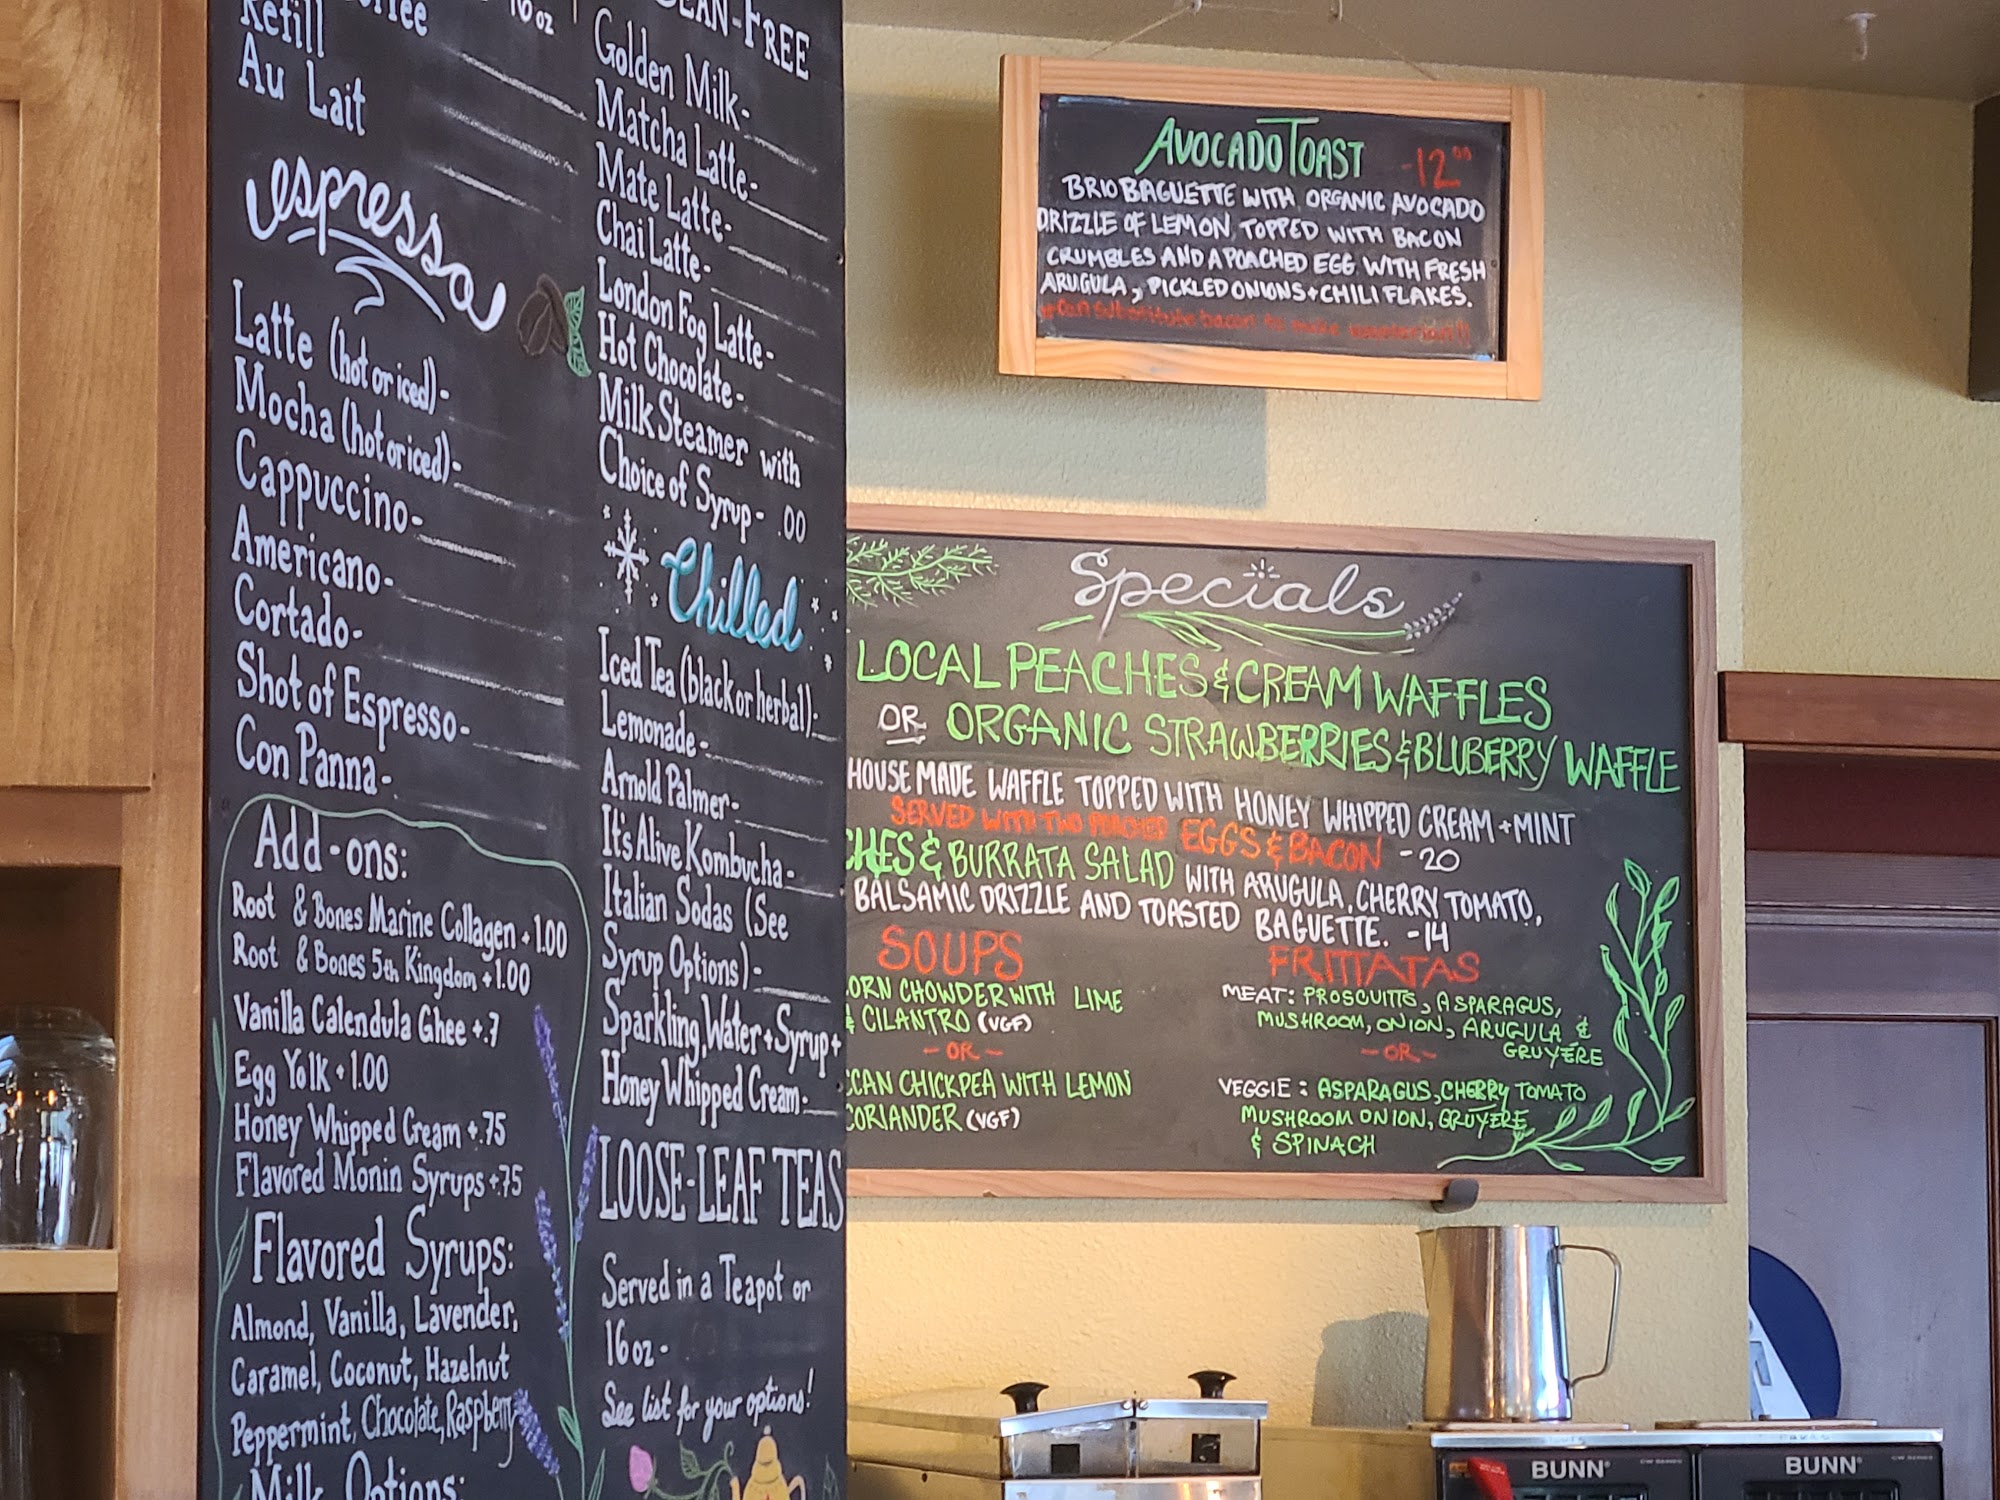 Refill
16oz
Au Lait
espresso
Latte (hot or iced)-
Mocha (hot or iced)-
Cappuccino-
Americano-
Cortado-
Shot of Espresso-
Con Panna-
Add-ons:
Root & Bones Marine Collagen + 1.00
Root & Bones 5th Kingdom +1.00
Vanilla Calendula Ghee +.7
Egg Yolk + 1.00
Honey Whipped Cream +.75
Flavored Monin Syrups +.75
Flavored Syrups:
Almond, Vanilla, Lavender,
Caramel, Coconut, Hazelnut
Peppermint, Chocolate, Raspberry
Milk Options:
-FREE
Golden Milk-
Matcha Latte-
Mate Latte-
Chai Latte-
London Fog Latte-
Hot Chocolate-
Milk Steamer with
Choice of Syrup- .00
Chilled
Iced Tea (black or herbal)-
Lemonade-
Arnold Palmer-
It's Alive Kombucha-
Italian Sodas (See
Syrup Options)-
Sparkling Water + Syrup +
Honey Whipped Cream-
LOOSE-LEAF TEAS
Served in a Teapot or
16oz-
See list for your options!
AVOCADO TOAST -12.00
BRIO BAGUETTE WITH ORGANIC AVOCADO
DRIZZLE OF LEMON TOPPED WITH BACON
CRUMBLES AND A POACHED EGG WITH FRESH
ARUGULA, PICKLED ONIONS + CHILI FLAKES.
*Can substitute bacon to make vegetarian!!
Specials
LOCAL PEACHES & CREAM WAFFLES
OR ORGANIC STRAWBERRIES & BLUBERRY WAFFLE
HOUSE MADE WAFFLE TOPPED WITH HONEY WHIPPED CREAM + MINT
SERVED WITH TWO POACHED EGGS & BACON -20
CHES & BURRATA SALAD WITH ARUGULA, CHERRY TOMATO,
BALSAMIC DRIZZLE AND TOASTED BAGUETTE. -14
SOUPS
ORN CHOWDER WITH LIME
& CILANTRO (VGF)
-OR-
CCAN CHICKPEA WITH LEMON
CORIANDER (VGF)
FRITTATAS
MEAT: PROSCUITTO, ASPARAGUS,
MUSHROOM, ONION, ARUGULA &
GRUYERE
-OR-
VEGGIE: ASPARAGUS, CHERRY TOMATO
MUSHROOM ONION, GRUYERE
& SPINACH
BUNN
CW SERIES
BUNN
CW SERIES